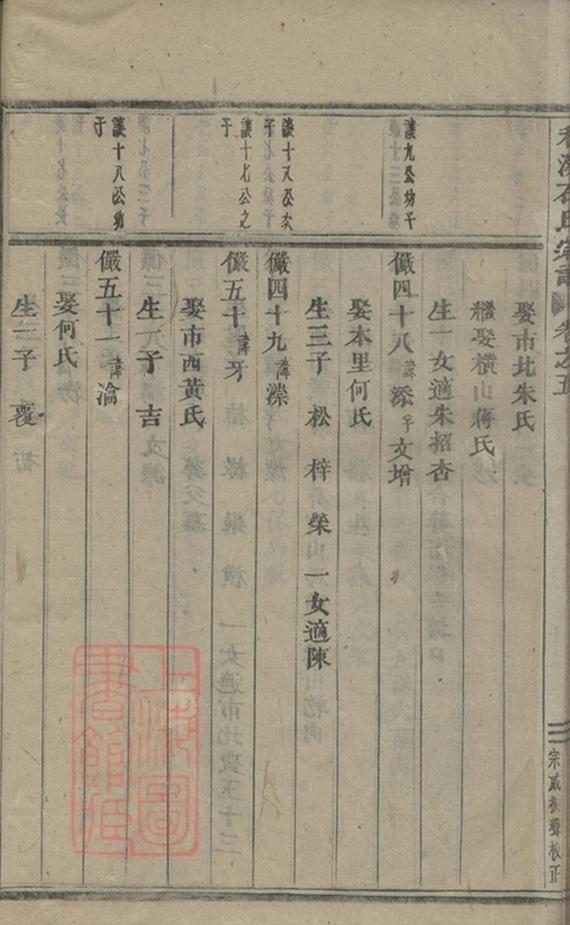 石氏宗譜 卷之五
宗 校正
娶市北朱氏
繼娶橫山蔣氏
生一女適朱招杏
讓九公幼子
儼四十八諱添字文增
娶本里何氏
生三子 松 梓 榮 一女適陳
讓十又公次子
儼四十九諱濼
讓十七公之子
儼五十諱牙
娶市西黃氏
生一子 吉
讓十八公幼子
儼五十一諱瀹
娶何氏
生一子 覆
上海圖書館藏